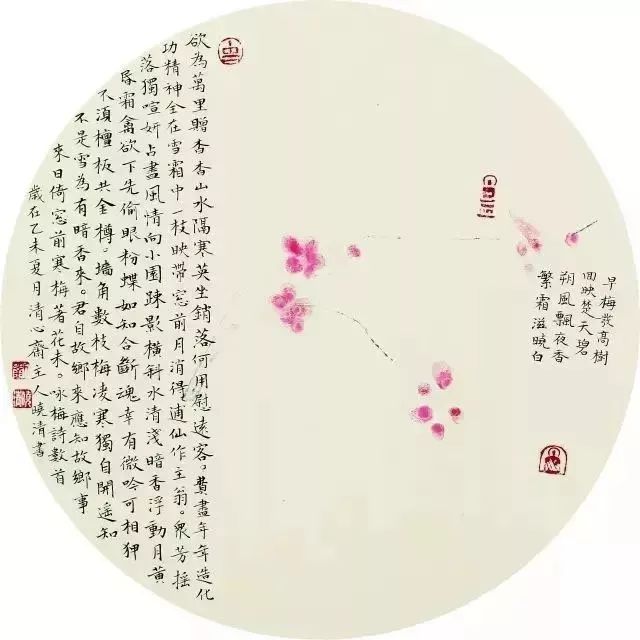 早梅發高樹
回映楚天碧
朔風飄夜香
繁霜滋曉白
欲為萬里贈杳杳山水隔寒英坐銷落何用慰遠客。費盡年年造化
功精神全在雪霜中一枝映帶窓前月消得逋仙作主翁。眾芳搖
落獨喧妍占盡風情向小園疎影橫斜水清淺暗香浮動月黃
昏霜禽欲下先偷眼粉蝶如知合斷魂幸有微吟可相狎
不湏檀板共金樽。墙角數枝梅凌寒獨自開遥知
不是雪為有暗香來。君自故鄉來應知故鄉事
來日倚窓前寒梅著花未。咏梅詩數首
歲在乙未夏月清心齋主人曉清書